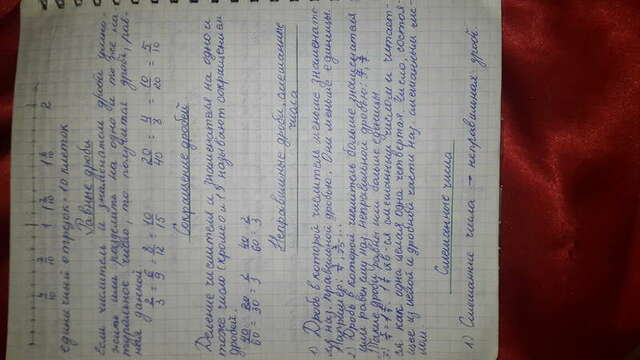 4/10 7/10 1 1 2/10 1 6/10 2
единичный отрезок = 10 клеток
Равные дроби
Если числитель и знаменатель дроби умно-
жить или разделить на одно и то же на-
туральное число, то получится дробь, рав-
ная данной.
2/3 = 6/9 = 8/12 = 10/15 20/40 = 4/8 = 10/20 = 5/10
Сокращение дробей
Деление числителя и знаменателя на одно и
тоже число (кроме 0 и 1) называют сокращением
дробей.
40/60 = 20/30 = 2/3 40/60 = 2/3
Неправильные дроби, смешанные
числа
1) Дробь в которой числитель меньше знаменате-
ля наз. правильной дробью. Они меньше единицы.
Например:
2) Дробь в которой числитель больше знаменателя
или равен ему наз. неправильной дробью:
Такие дроби равны или больше единицы.
яв-ся смешанным числом и читает-
ся как одна целая одна четвёртая. Число, состоя-
щее из целой и дробной части наз. смешанным чис-
лом.
Смешанные числа
1) Смешанные числа → неправильная дробь.